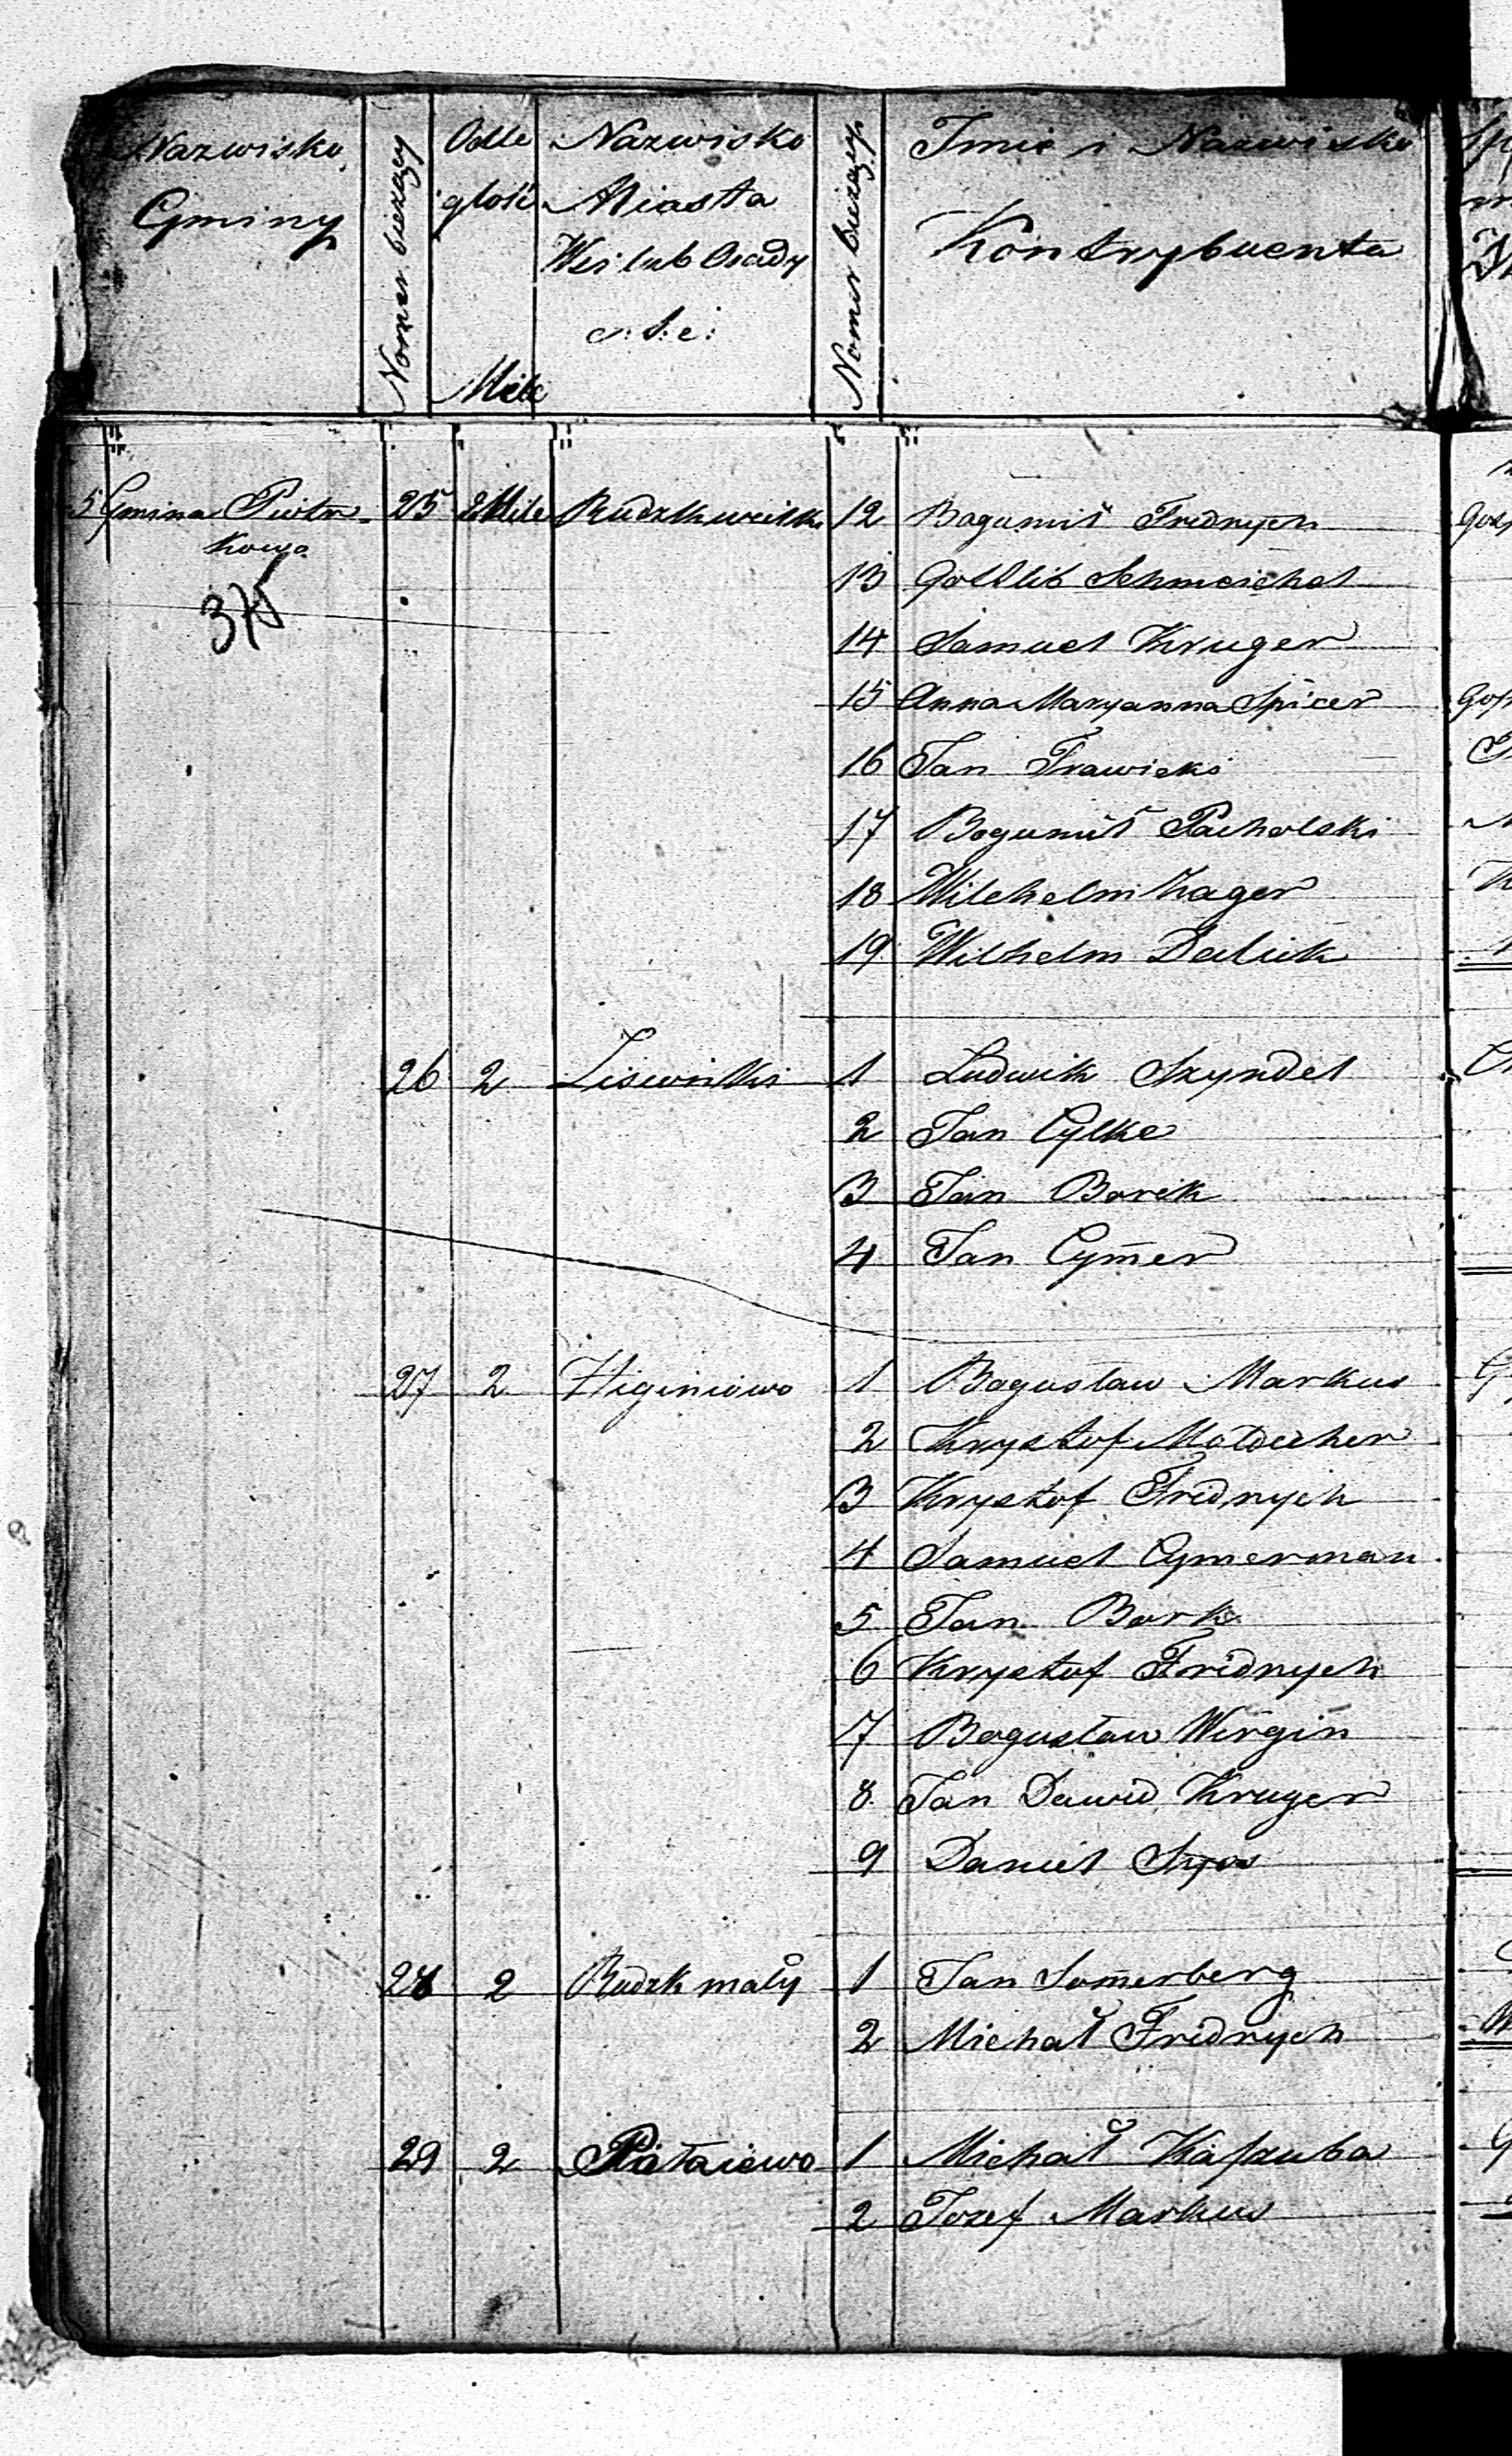 Nazwisko Gminy
Nomer bieżący
Odle głość Mile
Nazwisko Miasta Wsi lub Osady e: t: c:
Nomer bieżący
Imie i Nazwisko Kontrybuenta
5 Gmina Piotr- 25 2 Mile Rudzk wielki 12 Bogumił Fridrych
kowo
375
13 Gottlib Schmeichel
14 Samuel Kruger
15 Anna Maryanna Spicer
16 Jan Trawicki
17 Bogumił Pacholski
18 Wilchelm Zager
19 Wilhelm Daluk
26 2 Lisewnłki 1 Ludwik Szyndel
2 Jan Cylke
3 Jan Borik
4 Jan Cymer
27 2 Higiniowo 1 Bogusław Markus
2 Krysztof
3 Krysztof Fridrych
4 Samuel Cymerman
5 Jan Bork
6 Krysztof Fridrych
7 Bogusław Wirgin
8 Jan Dawid Kruger
9 Daniel
28 2 Rudzk mały 1 Jan Somerberg
2 Michał Fridrych
29 2 1 Michał Kaszuba
2 Jozef Markus